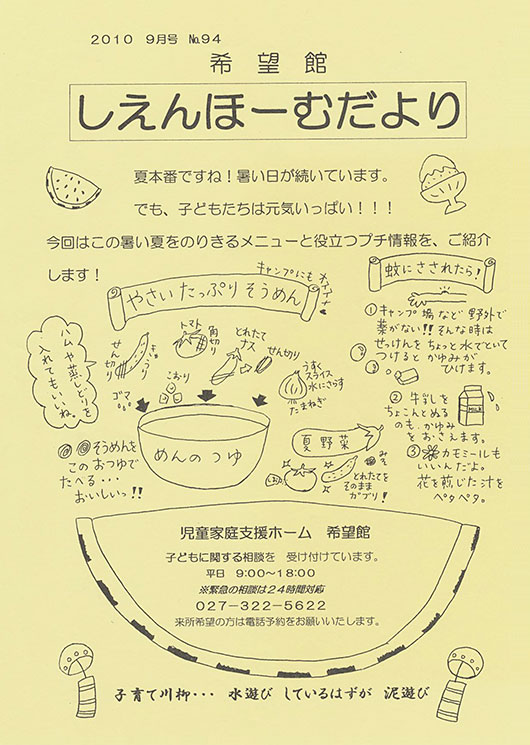 2010 9月号 №94
希望館
しえんほーむだより
夏本番ですね！暑い日が続いています。
でも、子どもたちは元気いっぱい！！！
今回はこの暑い夏をのりきるメニューと役立つプチ情報を、ご紹介
します！
キャンプにも
イイネ
やさいたっぷりそうめん
ハムや蒸しどりを
入れてもいいね。
せん切り
きゅうり
トマト
角切り
とれたて
ナス
せん切り
ゴマ
こおり
うすく
スライス
水にさらす
たまねぎ
めんのつゆ
そうめんを
このおつゆで
たべる・・・
おいしいっ!!
夏野菜
みそ
しお
とれたてを
そのまま
ガブリ！
蚊にさされたら！
①キャンプ場など野外で
薬がない!!そんな時は
せっけんをちょっと水でといて
つけるとかゆみが
ひけます。
②牛乳を
ちょこんとぬる
のも、かゆみ
をおさえます。
MILK
③カモミールも
いいんだよ。
花を煎じた汁を
ペタペタ。
児童家庭支援ホーム 希望館
子どもに関する相談を 受け付けています。
平日 9:00～18:00
※緊急の相談は24時間対応
027-322-5622
来所希望の方は電話予約をお願いいたします。
子育て川柳・・・ 水遊び しているはずが 泥遊び